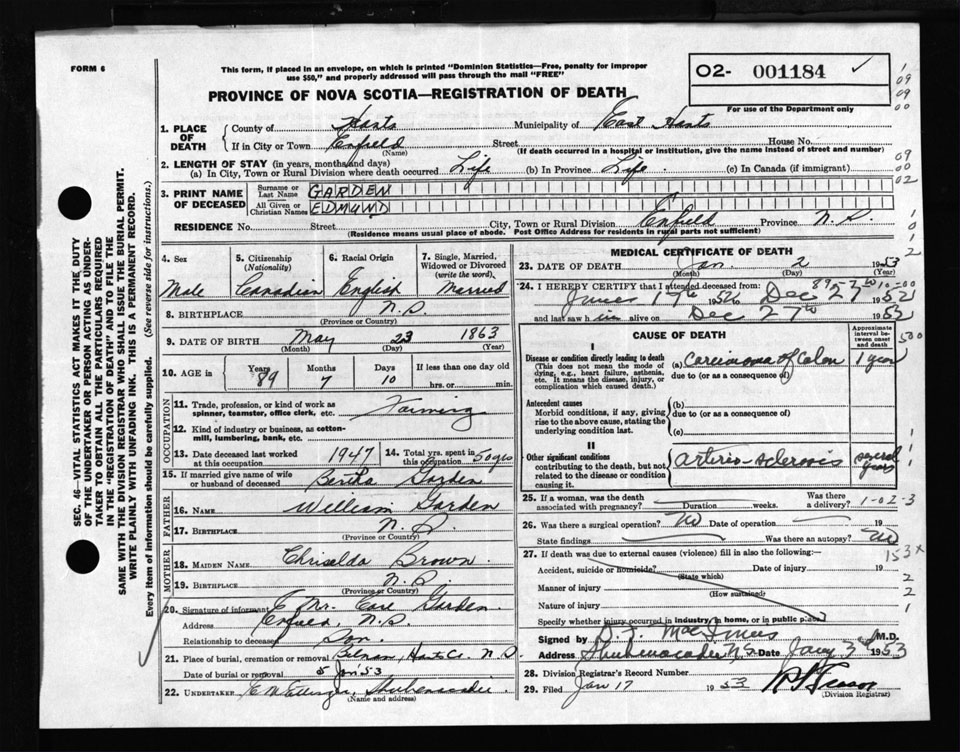 FORM 6
This form, if placed in an envelope, on which is printed "Dominion Statistics—Free, penalty for improper
use $50," and properly addressed will pass through the mail "FREE"
02- 001184 ✓
PROVINCE OF NOVA SCOTIA—REGISTRATION OF DEATH
For use of the Department only
1. PLACE OF DEATH
County of Hants Municipality of East Hants
If in City or Town Enfield Street House No.
(Name) (If death occurred in a hospital or institution, give the name instead of street and number)
2. LENGTH OF STAY (in years, months, and days)
(a) In City, Town or Rural Division where death occurred Life (b) In Province Life. (c) In Canada (if immigrant)
3. PRINT NAME OF DECEASED
Surname or Last Name GARDEN
All Given or Christian Names EDMUND
RESIDENCE No. Street City, Town or Rural Division Enfield Province N.S.
(Residence means usual place of abode. Post Office Address for residents in rural parts not sufficient)
4. Sex Male
5. Citizenship (Nationality) Canadian
6. Racial Origin English
7. Single, Married, Widowed or Divorced (write the word) Married
8. BIRTHPLACE N.S.
(Province or Country)
9. DATE OF BIRTH May 23 1863
(Month) (Day) (Year)
10. AGE in Years 89 Months 7 Days 10 If less than one day old
hrs. or min.
OCCUPATION
11. Trade, profession, or kind of work as
spinner, teamster, office clerk, etc. Farming
12. Kind of industry or business, as cotton-
mill, lumbering, bank, etc.
13. Date deceased last worked
at this occupation 1947 14. Total yrs. spent in
this occupation 50 yrs
15. If married give name of wife
or husband of deceased Bertha Garden
FATHER
16. Name William Garden
17. Birthplace N.S.
(Province or Country)
MOTHER
18. Maiden Name Chriselda Brown
19. Birthplace N.S.
(Province or Country)
20. Signature of informant Mr. Garden.
Address Enfield, N.S.
Relationship to deceased Son.
21. Place of burial, cremation or removal Hants Co. N.S.
Date of burial or removal 5 Jan '53
22. UNDERTAKER Shubenacadie
(Name and address)
MEDICAL CERTIFICATE OF DEATH
23. DATE OF DEATH Jan. 2 1953
(Month) (Day) (Year)
24. I HEREBY CERTIFY that I attended deceased from:
June 17th 1952 to Dec 27th 1952
and last saw him alive on Dec 27th 1952
CAUSE OF DEATH
Approximate interval between onset and death
I
Disease or condition directly leading to death
(This does not mean the mode of
dying, e.g., heart failure, asthenia,
etc. It means the disease, injury, or
complication which caused death.)
(a) Carcinoma of Colon 1 year
due to (or as a consequence of)
Antecedent causes
Morbid conditions, if any, giving
rise to the above cause, stating the
underlying condition last.
(b)
due to (or as a consequence of)
(c)
II
Other significant conditions
contributing to the death, but not
related to the disease or condition
causing it.
Arterio-sclerosis several years
25. If a woman, was the death
associated with pregnancy? Duration weeks. Was there
a delivery?
1-02-3
26. Was there a surgical operation? No Date of operation 19
State findings Was there an autopsy? No
27. If death was due to external causes (violence) fill in also the following:—
Accident, suicide or homicide? Date of injury 19
(State which)
Manner of injury
(How sustained)
Nature of injury
Specify whether injury occurred in industry, in home, or in public place
Signed by MacInnes M.D.
Address Shubenacadie N.S. Date Jany 3rd 1953
28. Division Registrar's Record Number
29. Filed Jan 17 1953
(Division Registrar)
SEC. 46—VITAL STATISTICS ACT MAKES IT THE DUTY
OF THE UNDERTAKER OR PERSON ACTING AS UNDER-
TAKER TO OBTAIN ALL THE PARTICULARS REQUIRED
IN THE "REGISTRATION OF DEATH" AND TO FILE THE
SAME WITH THE DIVISION REGISTRAR WHO SHALL ISSUE THE BURIAL PERMIT.
WRITE PLAINLY WITH UNFADING INK. THIS IS A PERMANENT RECORD.
Every item of information should be carefully supplied. (See reverse side for instructions.)